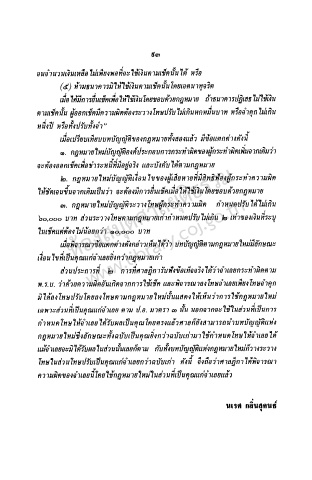 ๕๓
จนจำนวนเงินเหลือไม่เพียงพอที่จะใช้เงินตามเช็คนั้นได้ หรือ
(๕) ห้ามธนาคารมิให้ใช้เงินตามเช็คนั้นโดยเจตนาทุจริต
เมื่อได้มีการยื่นเช็คเพื่อให้ใช้เงินโดยชอบด้วยกฎหมาย ถ้าธนาคารปฏิเสธไม่ใช้เงิน
ตามเช็คนั้น ผู้ออกเช็คมีความผิดต้องระวางโทษปรับไม่เกินหกหมื่นบาท หรือจำคุกไม่เกิน
หนึ่งปี หรือทั้งปรับทั้งจำ"
เมื่อเปรียบเทียบบทบัญญัติของกฎหมายทั้งสองแล้ว มีข้อแตกต่างดังนี้
๑. กฎหมายใหม่บัญญัติองค์ประกอบการกระทำผิดของผู้กระทำผิดเพิ่มจากเดิมว่า
จะต้องออกเช็คเพื่อชำระหนี้ที่มีอยู่จริง และบังคับได้ตามกฎหมาย
๒. กฎหมายใหม่บัญญัติเงื่อนไขของผู้เสียหายที่มีสิทธิฟ้องผู้กระทำความผิด
ให้ชัดเจนขึ้นจากเดิมเป็นว่า จะต้องมีการยื่นเช็คเพื่อให้ใช้เงินโดยชอบด้วยกฎหมาย
๓. กฎหมายใหม่บัญญัติระวางโทษผู้กระทำความผิด กำหนดปรับได้ไม่เกิน
๖๐,๐๐๐ บาท ส่วนระวางโทษตามกฎหมายเก่ากำหนดปรับไม่เกิน ๒ เท่าของเงินที่ระบุ
ในเช็คแต่ต้องไม่น้อยกว่า ๑๐,๐๐๐ บาท
เมื่อพิจารณาข้อแตกต่างดังกล่าวเห็นได้ว่า บทบัญญัติตามกฎหมายใหม่มีลักษณะ
เงื่อนไขที่เป็นคุณแก่จำเลยยิ่งกว่ากฎหมายเก่า
ส่วนประการที่ ๒ การที่ศาลฎีการับฟังข้อเท็จจริงได้ว่าจำเลยกระทำผิดตาม
พ.ร.บ. ว่าด้วยความผิดอันเกิดจากการใช้เช็ค และพิจารณาลงโทษจำเลยเพียงโทษจำคุก
มิได้ลงโทษปรับโดยลงโทษตามกฎหมายใหม่นั้นแสดงให้เห็นว่าการใช้กฎหมายใหม่
เฉพาะส่วนที่เป็นคุณแก่จำเลย ตาม ป.อ. มาตรา ๓ นั้น นอกจากจะใช้ในส่วนที่เป็นการ
กำหนดโทษให้จำเลยได้รับผลเป็นคุณโดยตรงแล้วศาลก็ยังสามารถนำบทบัญญัติแห่ง
กฎหมายใหม่ซึ่งลักษณะทั้งฉบับเป็นคุณยิ่งกว่าฉบับเก่ามาใช้กำหนดโทษให้จำเลยได้
แม้จำเลยจะมิได้รับผลในส่วนนั้นเลยก็ตาม กับทั้งบทบัญญัติแห่งกฎหมายใหม่ก็วางระวาง
โทษในส่วนโทษปรับเป็นคุณแก่จำเลยยิ่งกว่าฉบับเก่า ดังนี้ จึงถือว่าศาลฎีกาได้พิจารณา
ความผิดของจำเลยนี้โดยใช้กฎหมายใหม่ในส่วนที่เป็นคุณแก่จำเลยแล้ว
นเรศ กลิ่นสุคนธ์